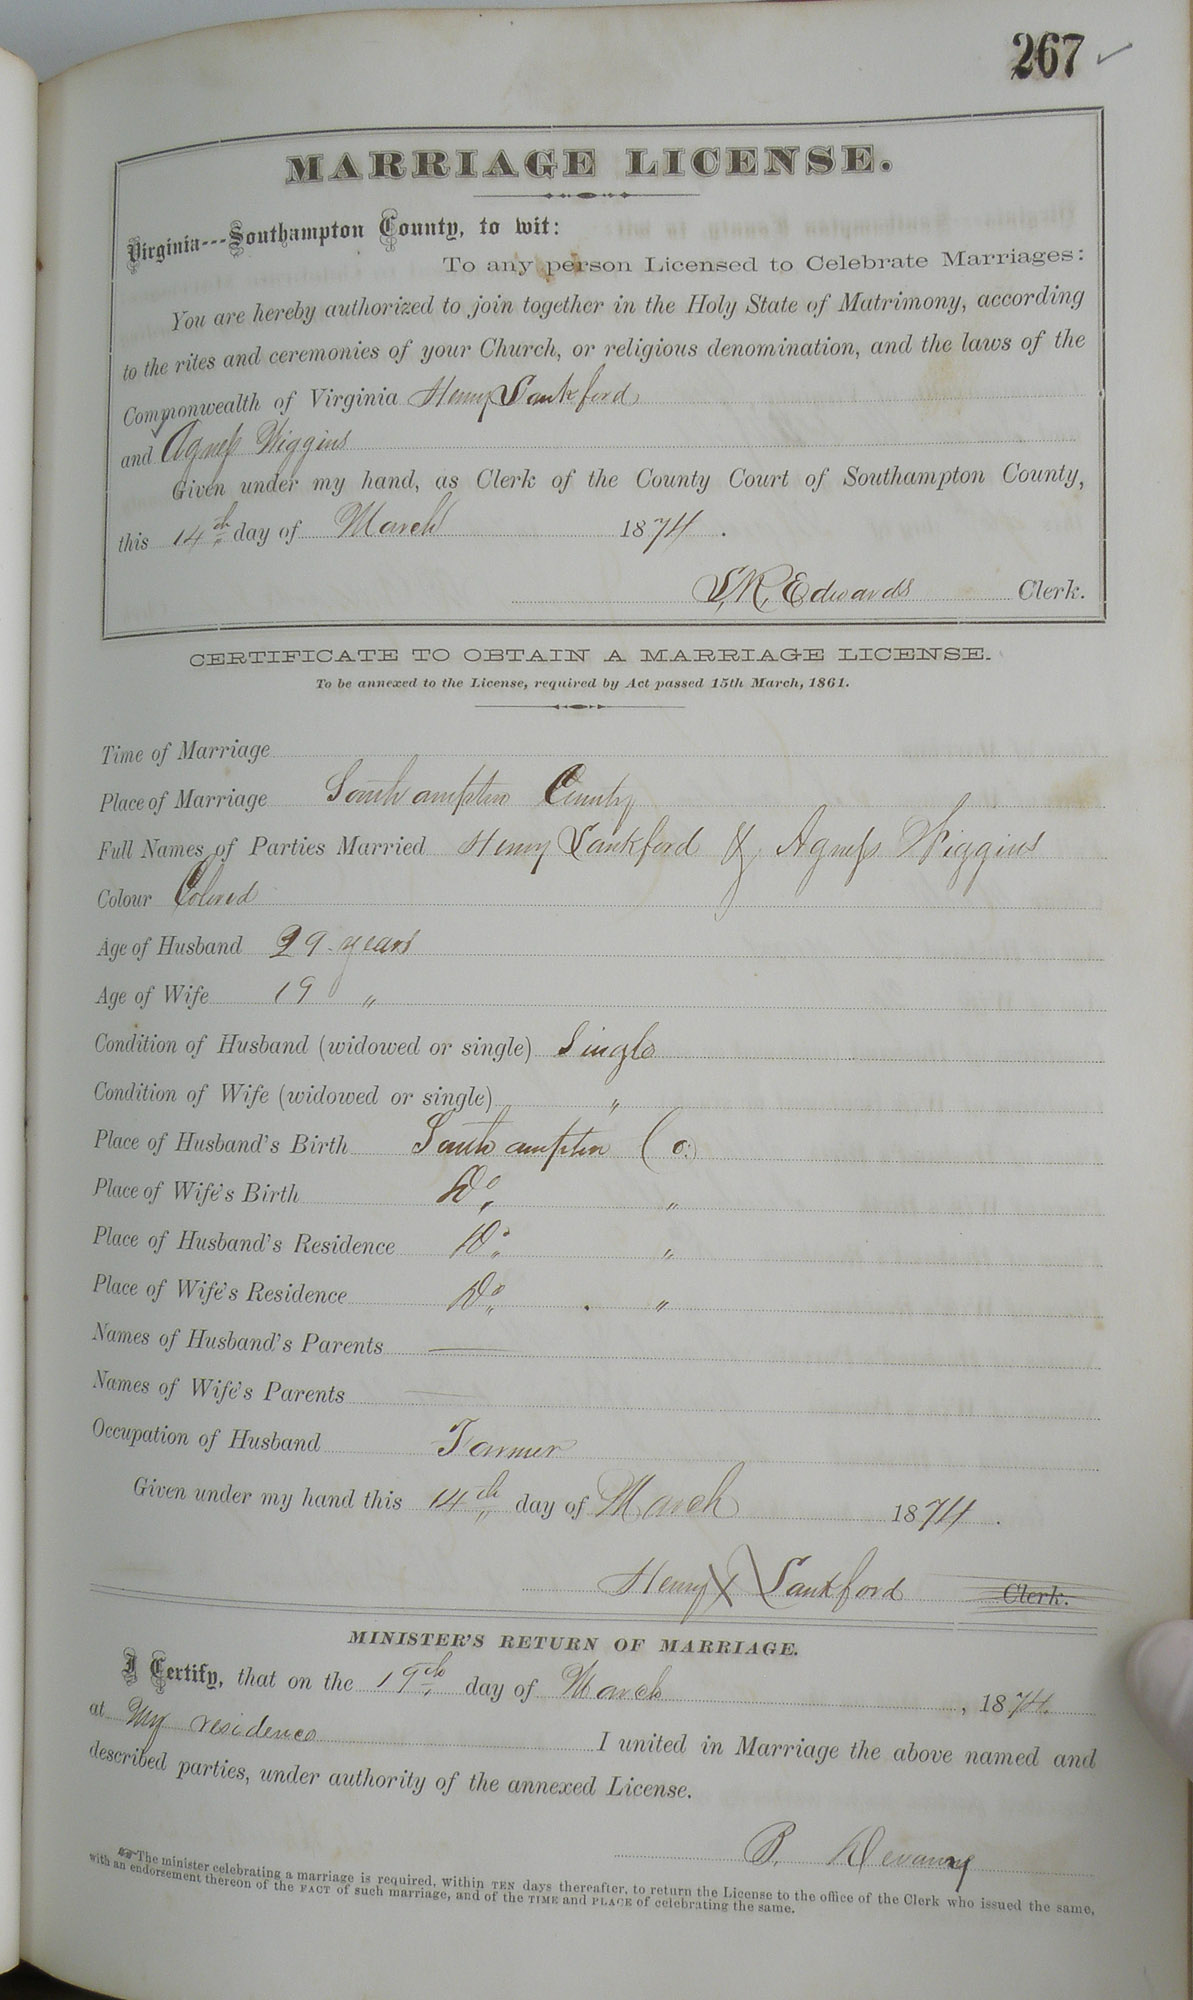 267 ✓
MARRIAGE LICENSE.
Virginia---Southampton County, to wit:
To any person Licensed to Celebrate Marriages:
You are hereby authorized to join together in the Holy State of Matrimony, according
to the rites and ceremonies of your Church, or religious denomination, and the laws of the
Commonwealth of Virginia Henry Lankford
and Agness Wiggins
Given under my hand, as Clerk of the County Court of Southampton County,
this 14th day of March 1874.
L. R. Edwards Clerk.
CERTIFICATE TO OBTAIN A MARRIAGE LICENSE.
To be annexed to the License, required by Act passed 15th March, 1861.
Time of Marriage
Place of Marriage Southampton County
Full Names of Parties Married Henry Lankford & Agness Wiggins
Colour Colored
Age of Husband 29 years
Age of Wife 19 "
Condition of Husband (widowed or single) Single
Condition of Wife (widowed or single) "
Place of Husband's Birth Southampton Co.
Place of Wife's Birth Do "
Place of Husband's Residence Do "
Place of Wife's Residence Do "
Names of Husband's Parents —
Names of Wife's Parents —
Occupation of Husband Farmer
Given under my hand this 14th day of March 1874.
Henry X Lankford Clerk.
MINISTER'S RETURN OF MARRIAGE.
I Certify, that on the 19th day of March, 1874.
at My residence I united in Marriage the above named and
described parties, under authority of the annexed License.
B. Devanny
☞ The minister celebrating a marriage is required, within TEN days thereafter, to return the License to the office of the Clerk who issued the same,
with an endorsement thereon of the FACT of such marriage, and of the TIME and PLACE of celebrating the same.